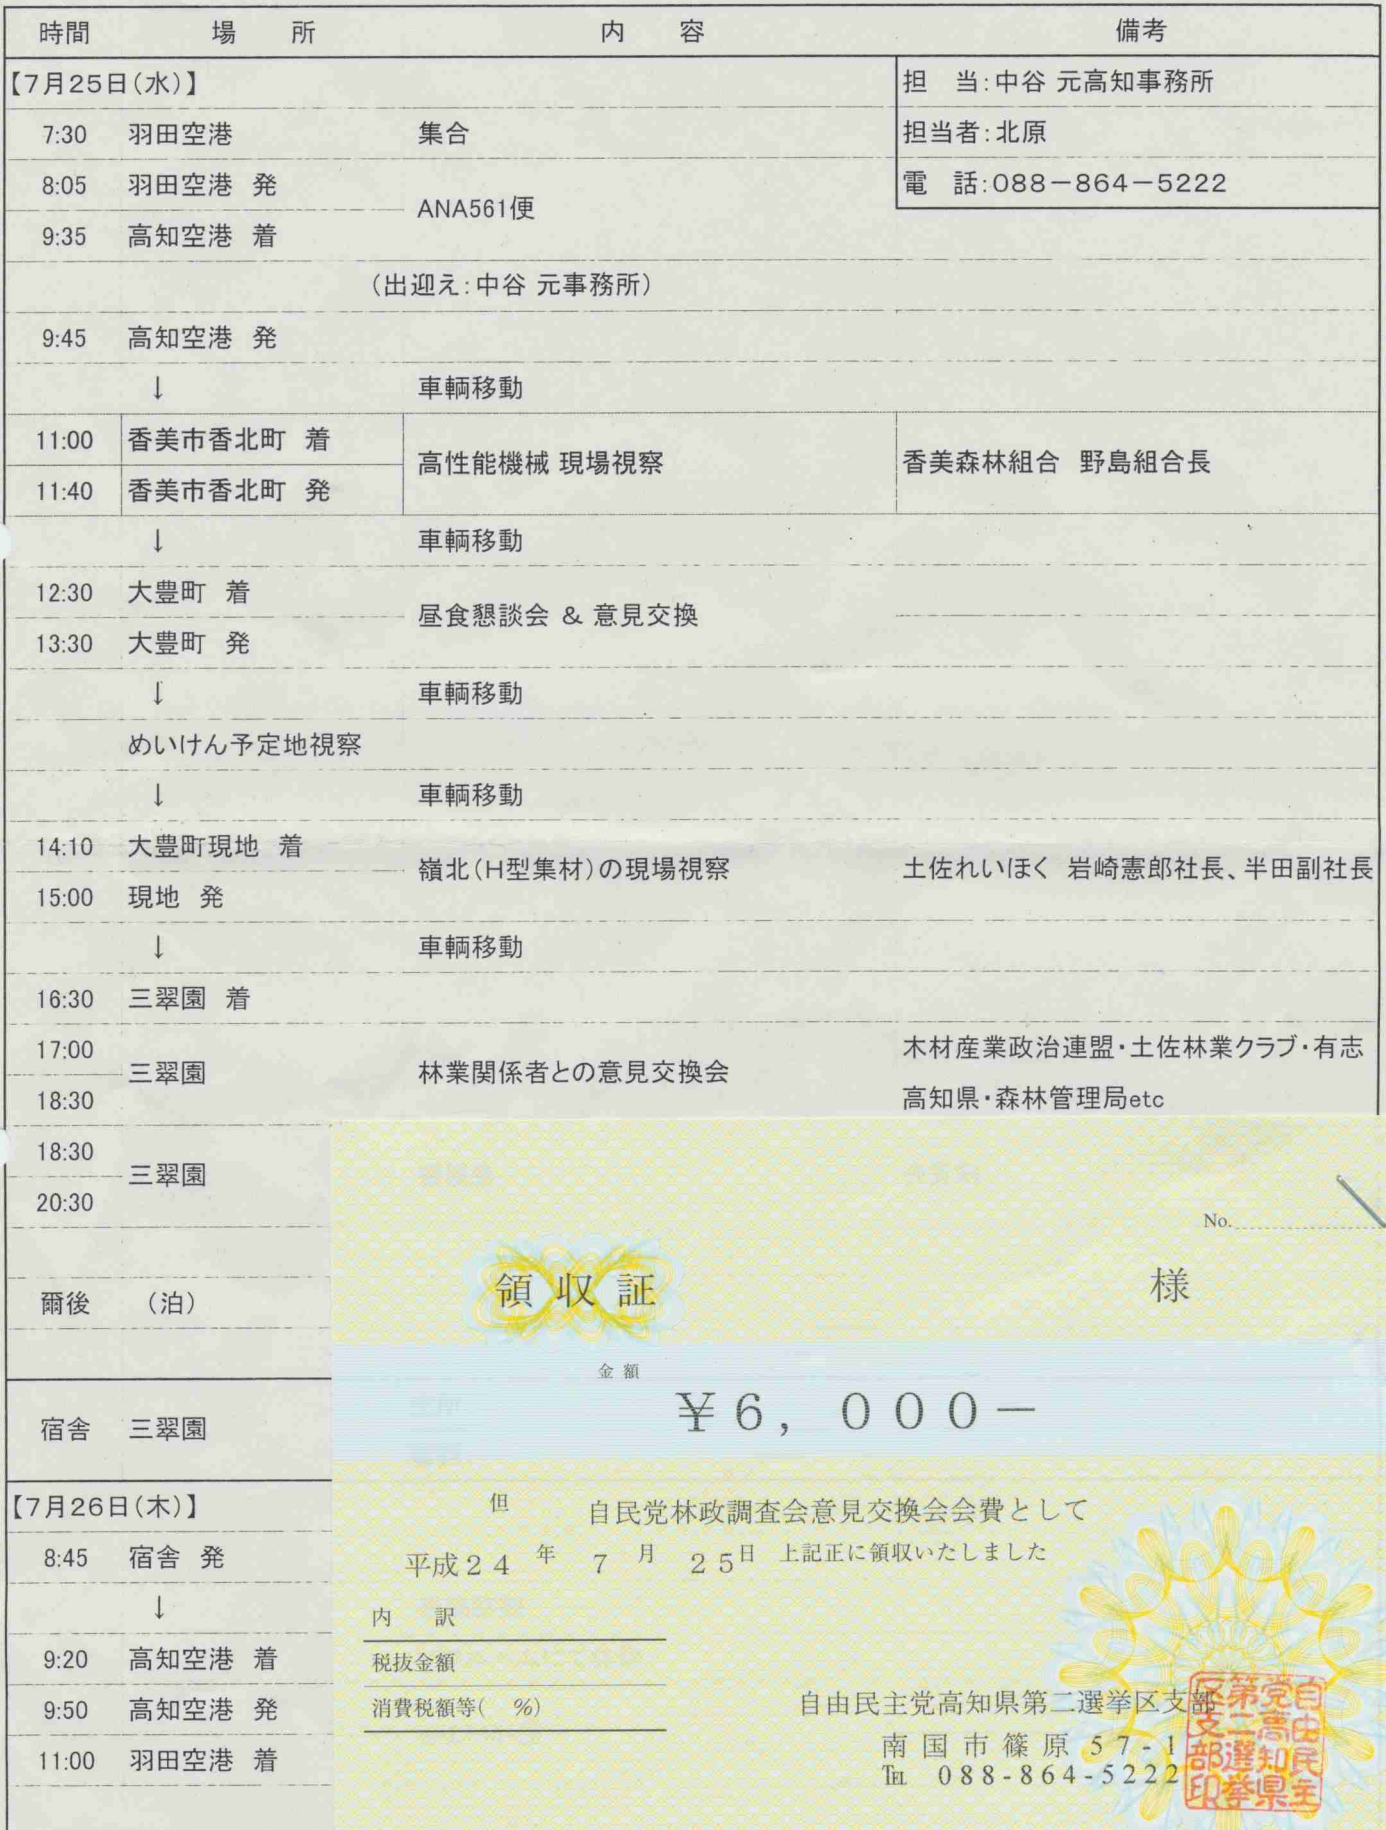 時間 場所 内容 備考
【7月25日(水)】 担 当:中谷 元高知事務所
7:30 羽田空港 集合 担当者:北原
8:05 羽田空港 発 電 話:088－864－5222
ANA561便
9:35 高知空港 着
(出迎え:中谷 元事務所)
9:45 高知空港 発
↓ 車輌移動
11:00 香美市香北町 着
高性能機械 現場視察 香美森林組合 野島組合長
11:40 香美市香北町 発
↓ 車輌移動
12:30 大豊町 着
昼食懇談会 & 意見交換
13:30 大豊町 発
↓ 車輌移動
めいけん予定地視察
↓ 車輌移動
14:10 大豊町現地 着
嶺北(H型集材)の現場視察 土佐れいほく 岩崎憲郎社長、半田副社長
15:00 現地 発
↓ 車輌移動
16:30 三翠園 着
17:00 木材産業政治連盟・土佐林業クラブ・有志
三翠園 林業関係者との意見交換会
18:30 高知県・森林管理局etc
18:30
三翠園
20:30
爾後 (泊)
宿舎 三翠園
【7月26日(木)】
8:45 宿舎 発
↓
9:20 高知空港 着
9:50 高知空港 発
11:00 羽田空港 着
No.
領収証 様
金額
￥6,000－
但 自民党林政調査会意見交換会会費として
平成24年7月25日 上記正に領収いたしました
内 訳
税抜金額
消費税額等( %)
自由民主党高知県第二選挙区支部
南国市篠原57-1
℡ 088-864-5222
自由民主
党高知県
第二選挙
区支部印